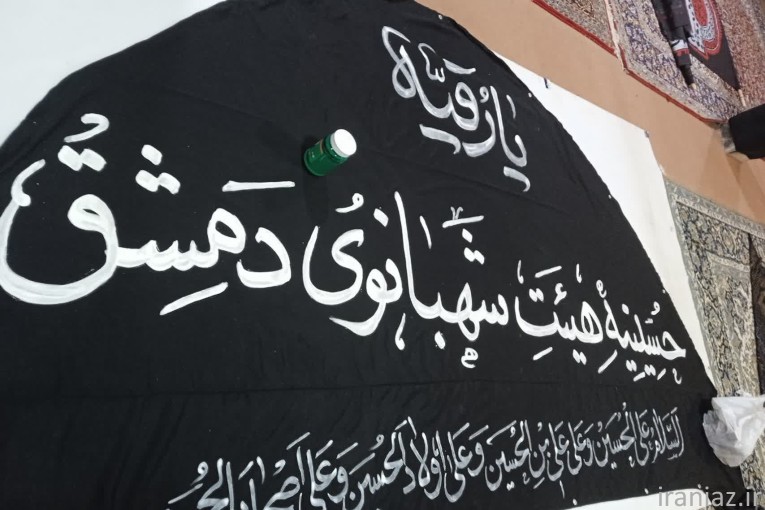 یا رقیه
حُسینیه هیئت شهبانوی دمشق
اَلسَّلامُ عَلَی الْحُسَیْنِ وَ عَلی عَلِیِّ بْنِ الْحُسَیْنِ وَ عَلی اَوْلادِ الْحُسَیْنِ وَ عَلی اَصْحابِ الْحُسَیْنِ
iraniaz.ir